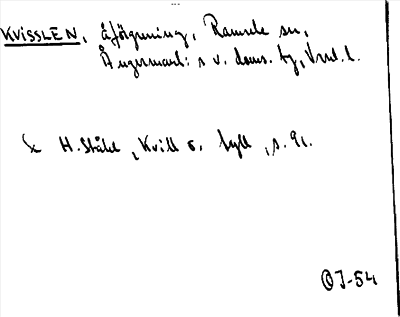 KVISSLEN, åförgrening, Ramsele sn,
Ångermanl: s v. doms. tg, Vnrl. l.
H. Ståhl, Kvill o. tyll, s. 91.
OJ-54